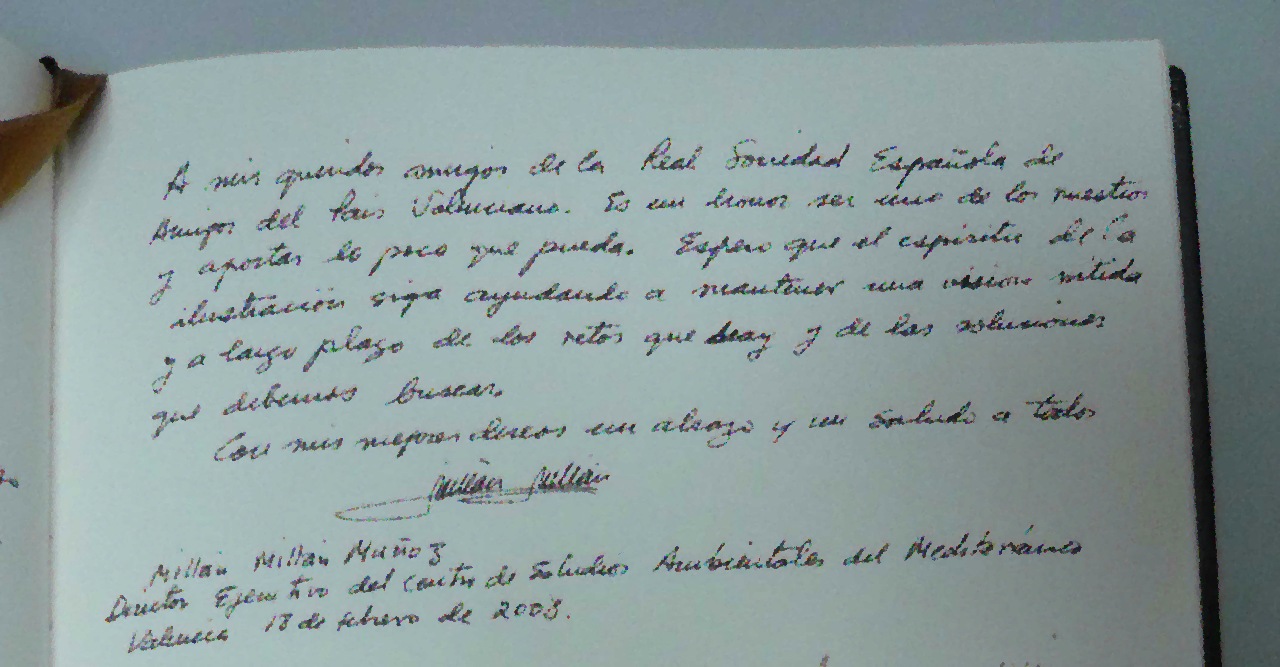 A mis queridos amigos de la Real Sociedad Española de
Amigos del País Valenciano. Es un honor ser uno de los vuestros
y aportar lo poco que pueda. Espero que el espíritu de la
ilustración siga ayudando a mantener una visión nítida
y a largo plazo de los retos que hay y de las soluciones
que debemos buscar.
Con mis mejores deseos un abrazo y un saludo a todos
Millán Millán
Millán Millán Muñoz
Director Ejecutivo del Centro de Estudios Ambientales del Mediterráneo
Valencia 18 de febrero de